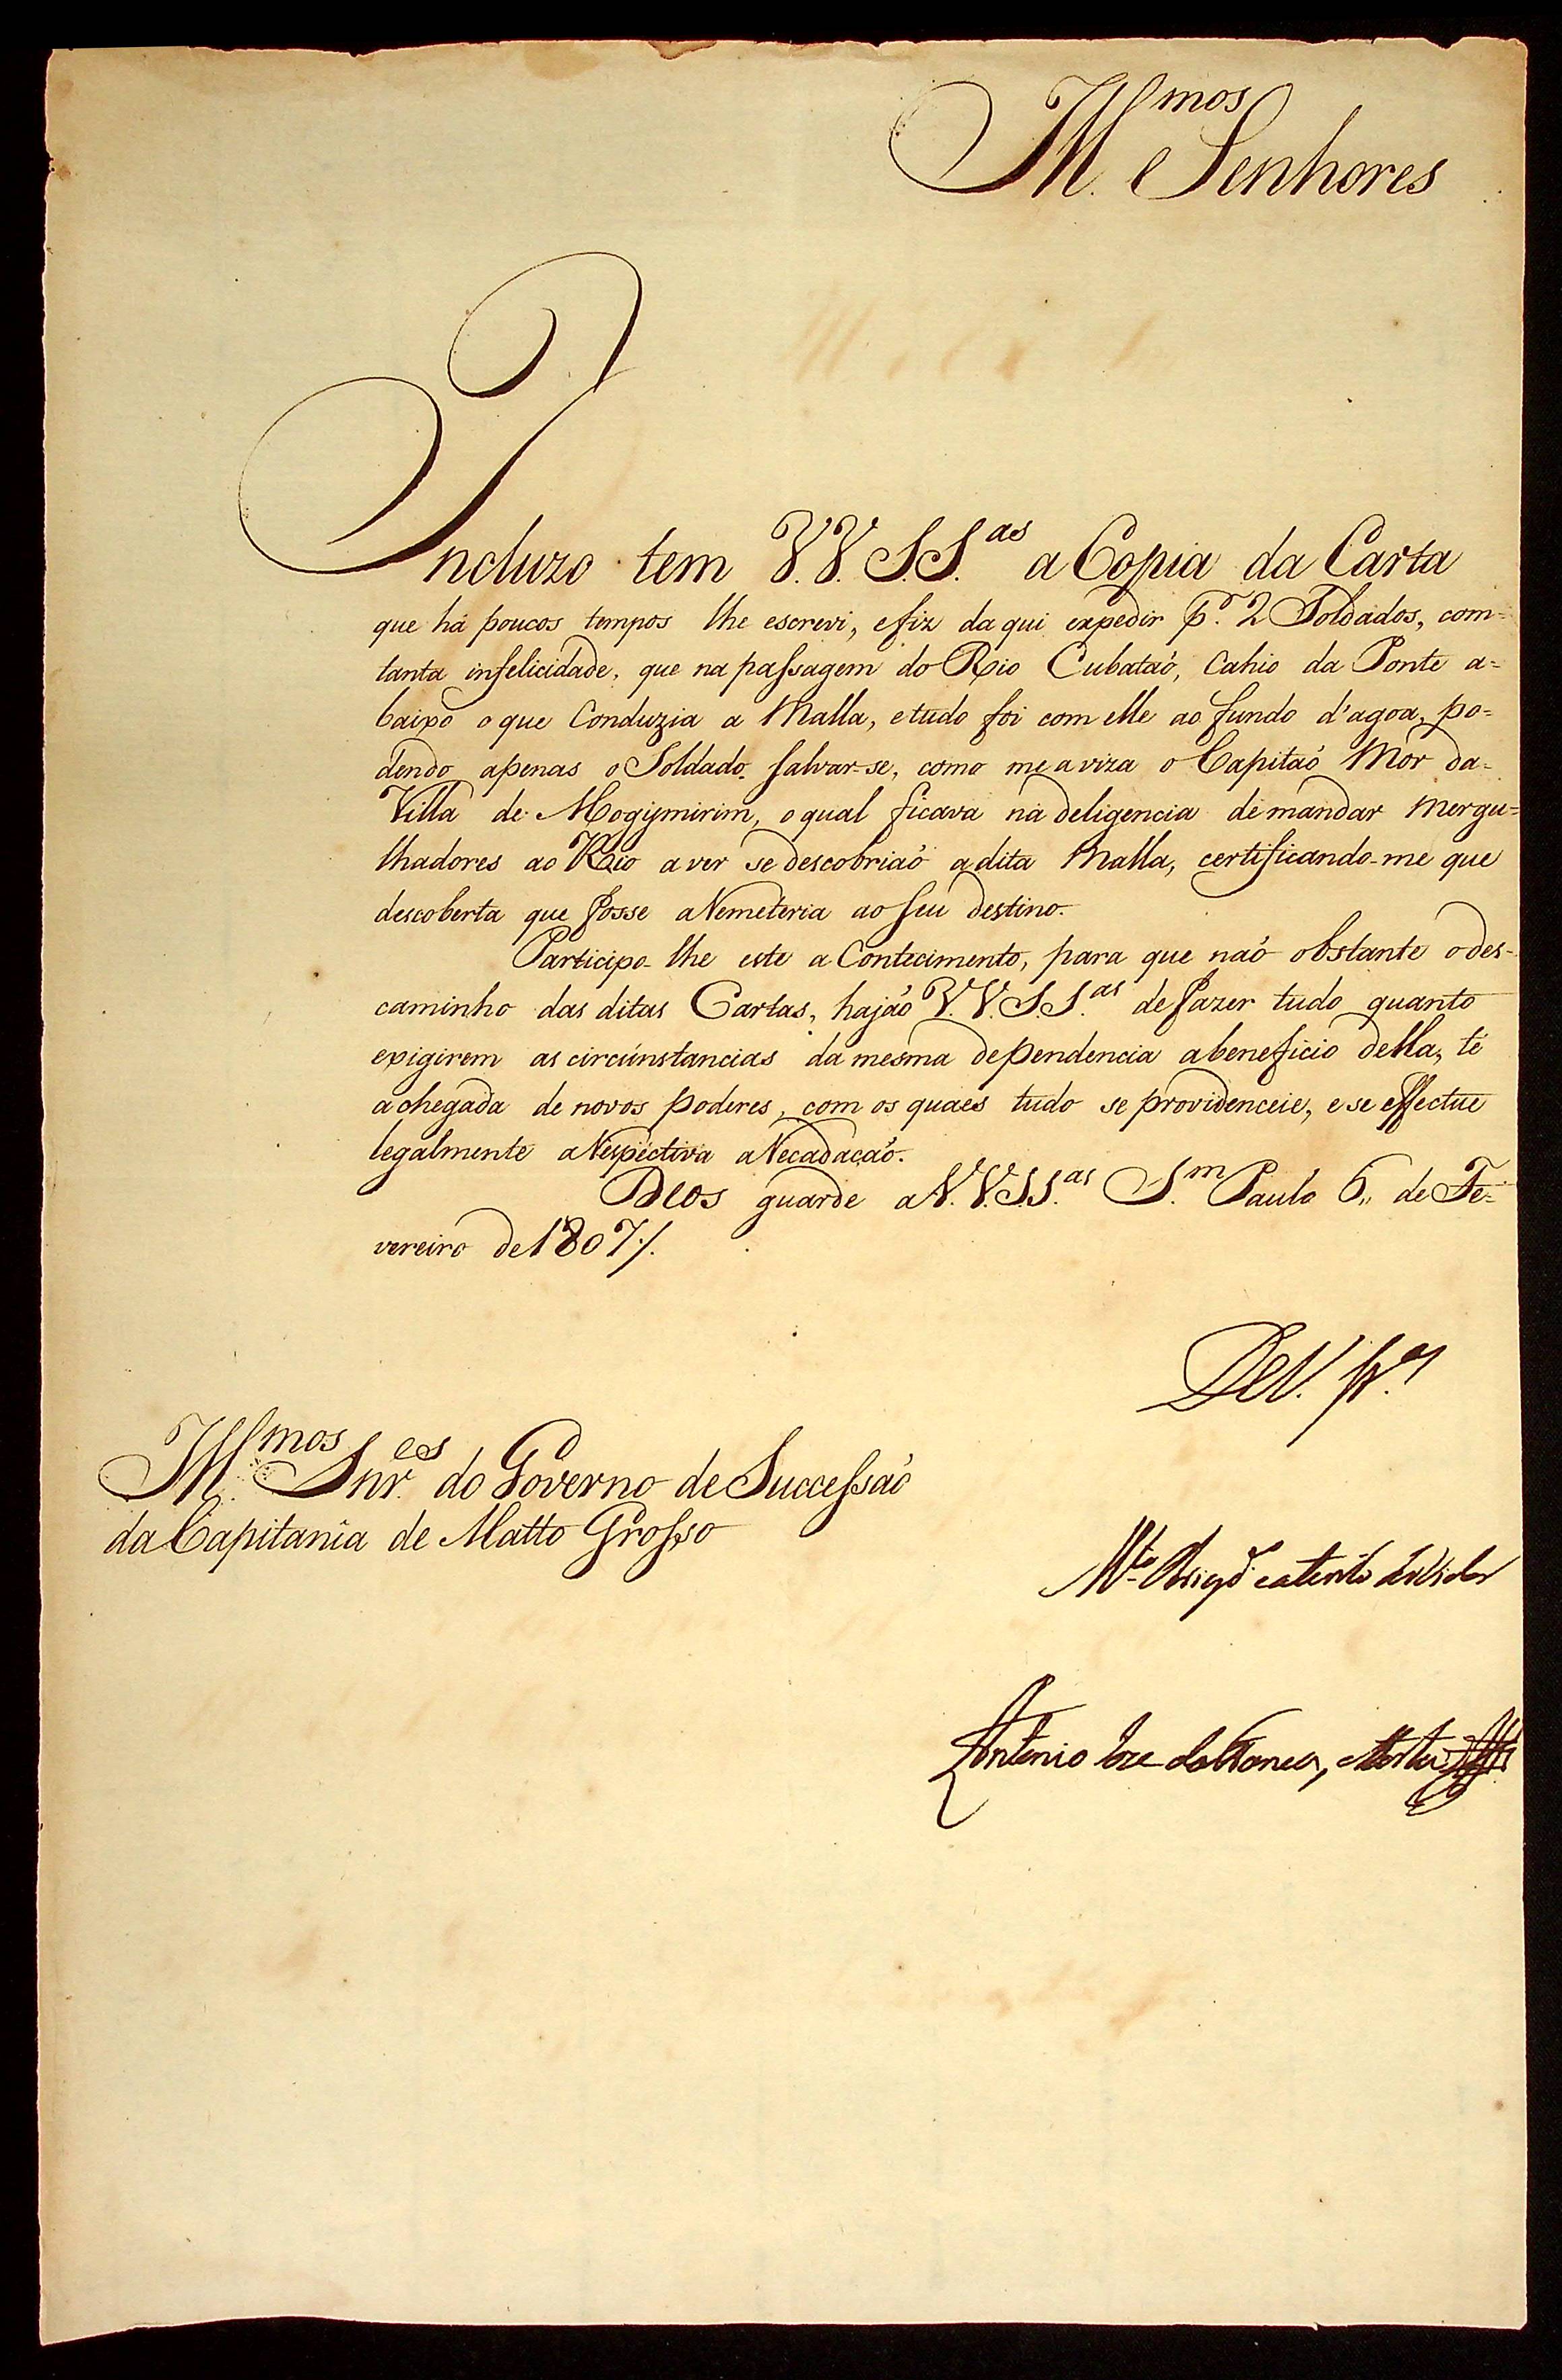 Ill.mos Senhores
Incluzo tem V.V. S.S.as a Copia da Carta
que há poucos tempos lhe escrevi, e fiz daqui expedir p.r 2 Soldados, com
tanta infelicidade, que na passagem do Rio Cubataõ, Cahio da Ponte a=
baixo o que Conduzia a Malla, e tudo foi com elle ao fundo d'agoa, po=
dendo apenas o Soldado salvar-se, como me aviza o Capitaõ Mor da
Villa de Mogymirim, o qual ficava na deligencia de mandar Mergu=
lhadores ao Rio a ver se descobriaõ a dita Malla, certificando-me que
descoberta que fosse a Remeteria ao seu destino.
Participo-lhe este aContecimento, para que naõ obstante o des-
caminho das ditas Cartas, hajaõ V.V. S.S.as de fazer tudo quanto
exigirem as circunstancias da mesma dependencia a beneficio della, té
a chegada de novos poderes, com os quaes tudo se providenceie, e se effectue
legalmente a Respectiva aRecadacaõ.
Deos guarde a V.V. S.S.as S.m Paulo 6,, de Fe=
vereiro de 1807/.
De V. S.as
Ill.mos Snr.es do Governo de Successaõ
da Capitania de Matto Grosso
M.to Obrigd.o e atento
Antonio Joze da Franca, e Horta